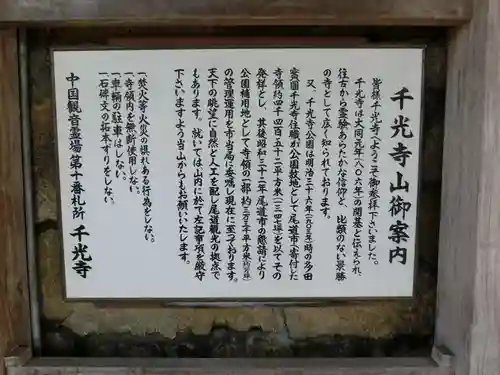 千光寺山御案内
皆様千光寺へようこそ御参拝下さいました。
千光寺は大同元年(八〇六年)の開基と伝えられ、
往古から霊験あらたかな信仰と、比類のない景勝
の寺として広く知られております。
又、千光寺公園は明治三十六年(一九〇三年)時の多田
實圓千光寺住職が公園敷地として尾道市へ寄付した
寺領約四千四百五十二平方米(一三四七坪)を以てその
発祥とし、其後昭和三十二年尾道市の懇請により
公園補用地として寺領の一部約三万三千平方米
の管理運用を市当局に委嘱し現在に至っております。
天下の眺望に自然と人工を配し尾道観光の拠点で
もあります。就いては山内に於て左記事項を厳守
下さいますよう当山からもお願いいたします。
一、焚火等火災の惧れある行為をしない。
一、寺領内を無断使用しない。
一、車輌の駐車はしない。
一、石碑文の拓本ずりをしない。
中国観音霊場第十番札所 千光寺